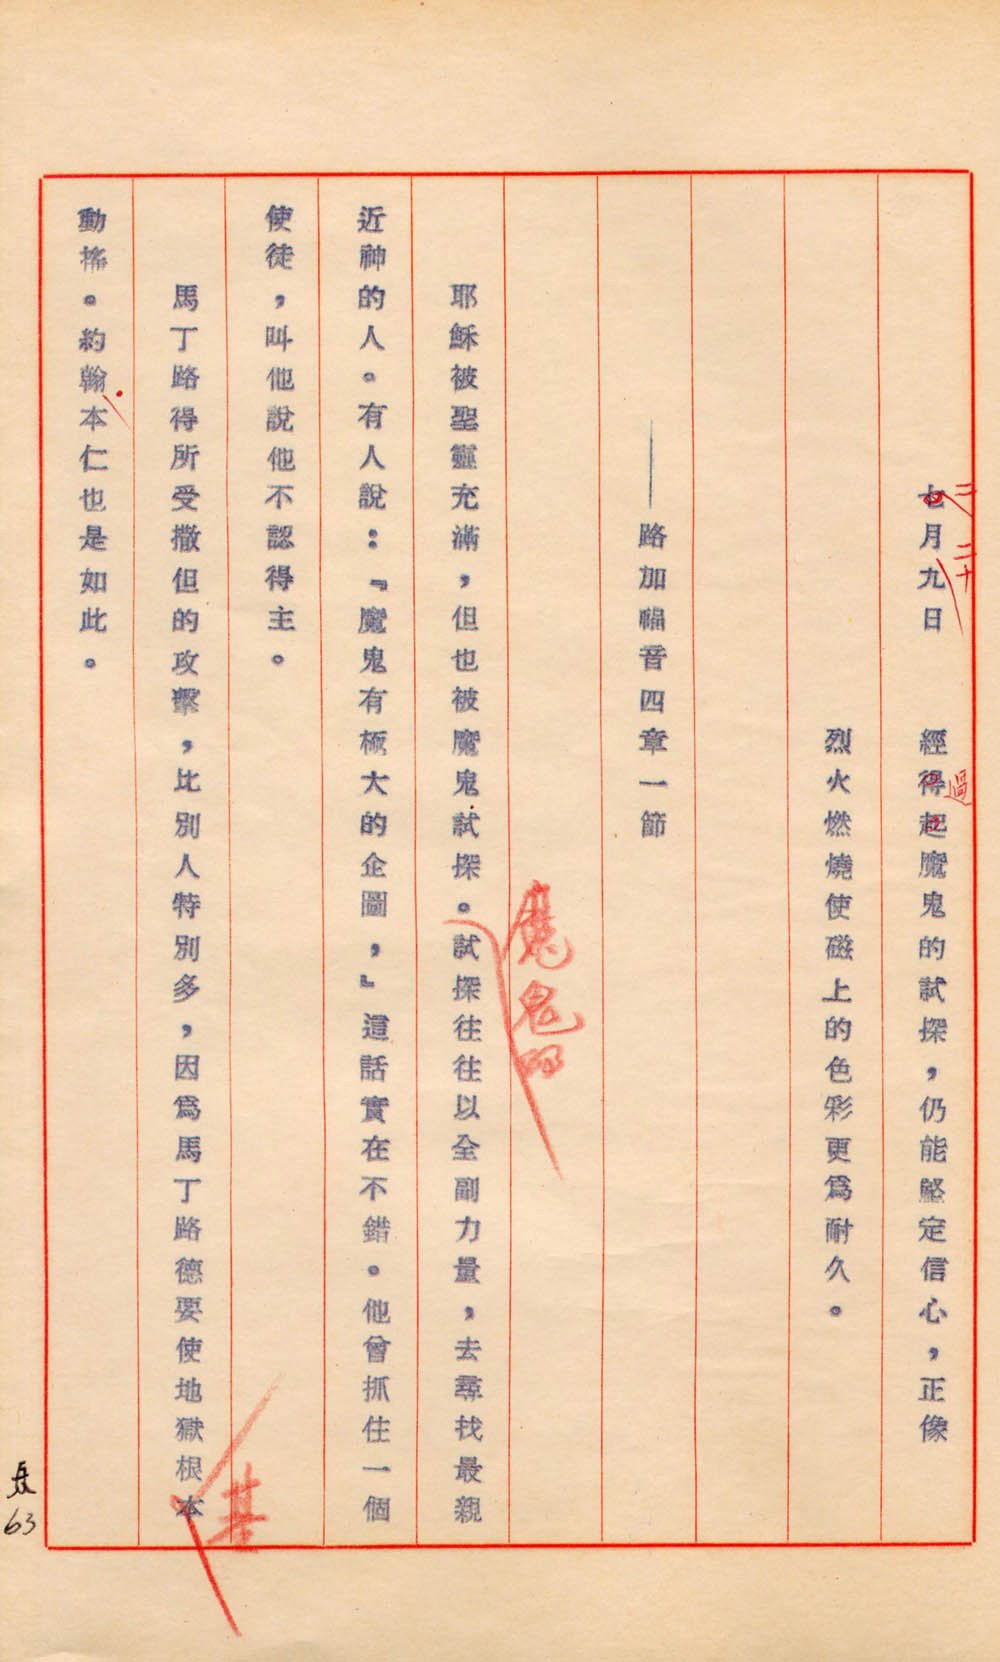 七月九日　經得起魔鬼的試探，仍能堅定信心，正像
二
二十
過
烈火燃燒使磁上的色彩更爲耐久。
——路加福音四章一節
魔鬼的
耶穌被聖靈充滿，但也被魔鬼試探。試探往往以全副力量，去尋找最親
近神的人。有人說：『魔鬼有極大的企圖，』這話實在不錯。他曾抓住一個
使徒，叫他說他不認得主。
基
馬丁路得所受撒但的攻擊，比別人特別多，因爲馬丁路德要使地獄根本
動搖。約翰本仁也是如此。
63